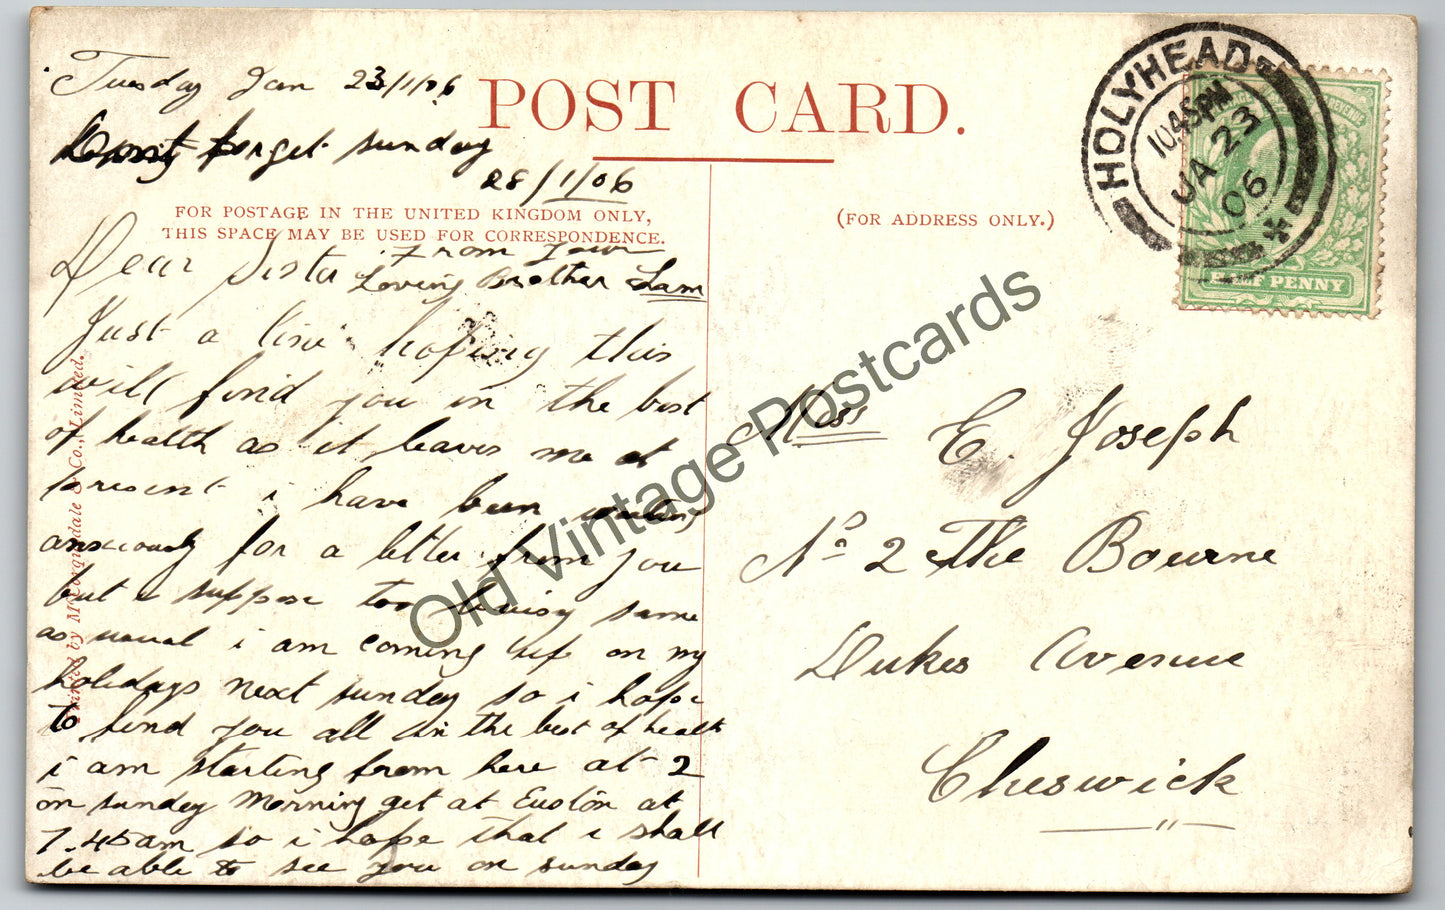 Tuesday Jan 23/1/06
forget sunday
28/1/06
POST CARD.
FOR POSTAGE IN THE UNITED KINGDOM ONLY,
THIS SPACE MAY BE USED FOR CORRESPONDENCE.
(FOR ADDRESS ONLY.)
HOLYHEAD
10.45 PM
JA 23
06
REVENUE
HALF PENNY
Dear Sister From your
Loving Brother Sam
Just a line hoping this
will find you in the best
of health as it leaves me at
present i have been waiting
anxiously for a letter from you
but i suppose too busy same
as usual i am coming up on my
holidays next sunday so i hope
to find you all in the best of health
i am starting from here at 2
on sunday morning get at Euston at
7.45am so i hope that i shall
be able to see you on sunday
Printed by McCorquodale & Co., Limited.
Miss E. Joseph
No 2 The Bourne
Dukes Avenue
Cheswick
Old Vintage Postcards